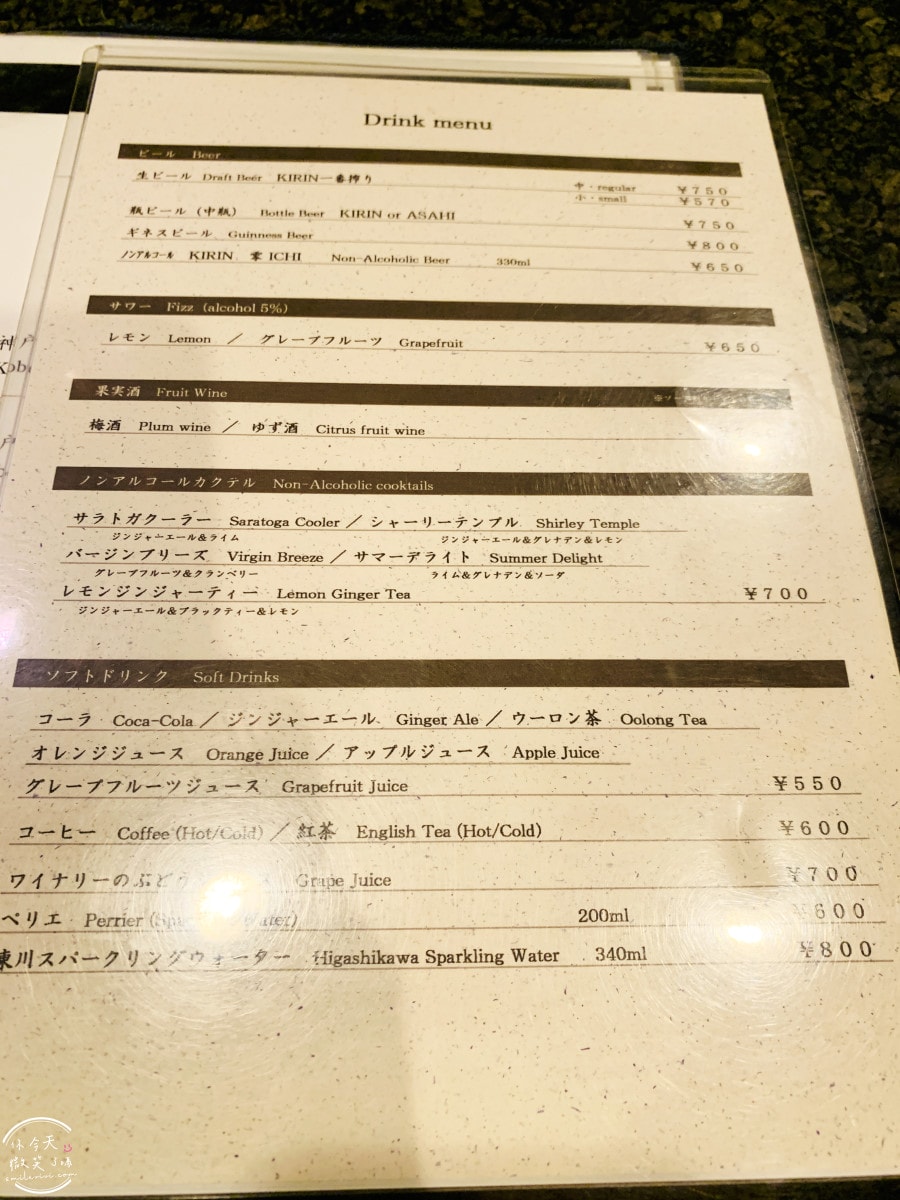 Drink menu
ビール Beer
生ビール Draft Beer KIRIN一番搾り 中・regular ¥750
小・small ¥570
瓶ビール（中瓶） Bottle Beer KIRIN or ASAHI ¥750
ギネスビール Guinness Beer ¥800
ノンアルコール KIRIN 零 ICHI Non-Alcoholic Beer 330ml ¥650
サワー Fizz (alcohol 5%)
レモン Lemon ／ グレープフルーツ Grapefruit ¥650
果実酒 Fruit Wine
梅酒 Plum wine ／ ゆず酒 Citrus fruit wine
ノンアルコールカクテル Non-Alcoholic cooktails
サラトガクーラー Saratoga Cooler ／ シャーリーテンプル Shirley Temple
ジンジャーエール&ライム ジンジャーエール&グレナデン&レモン
バージンブリーズ Virgin Breeze ／ サマーデライト Summer Delight
グレープフルーツ&クランベリー ライム&グレナデン&ソーダ
レモンジンジャーティー Lemon Ginger Tea ¥700
ジンジャーエール&ブラックティー&レモン
ソフトドリンク Soft Drinks
コーラ Coca-Cola ／ ジンジャーエール Ginger Ale ／ ウーロン茶 Oolong Tea
オレンジジュース Orange Juice ／ アップルジュース Apple Juice
グレープフルーツジュース Grapefruit Juice ¥550
コーヒー Coffee (Hot/Cold) ／ 紅茶 English Tea (Hot/Cold) ¥600
ワイナリーのぶどう Grape Juice ¥700
ペリエ Perrier 200ml ¥600
東川スパークリングウォーター Higashikawa Sparkling Water 340ml ¥800
神戸
Kob
戸
休今天
微笑了嗎